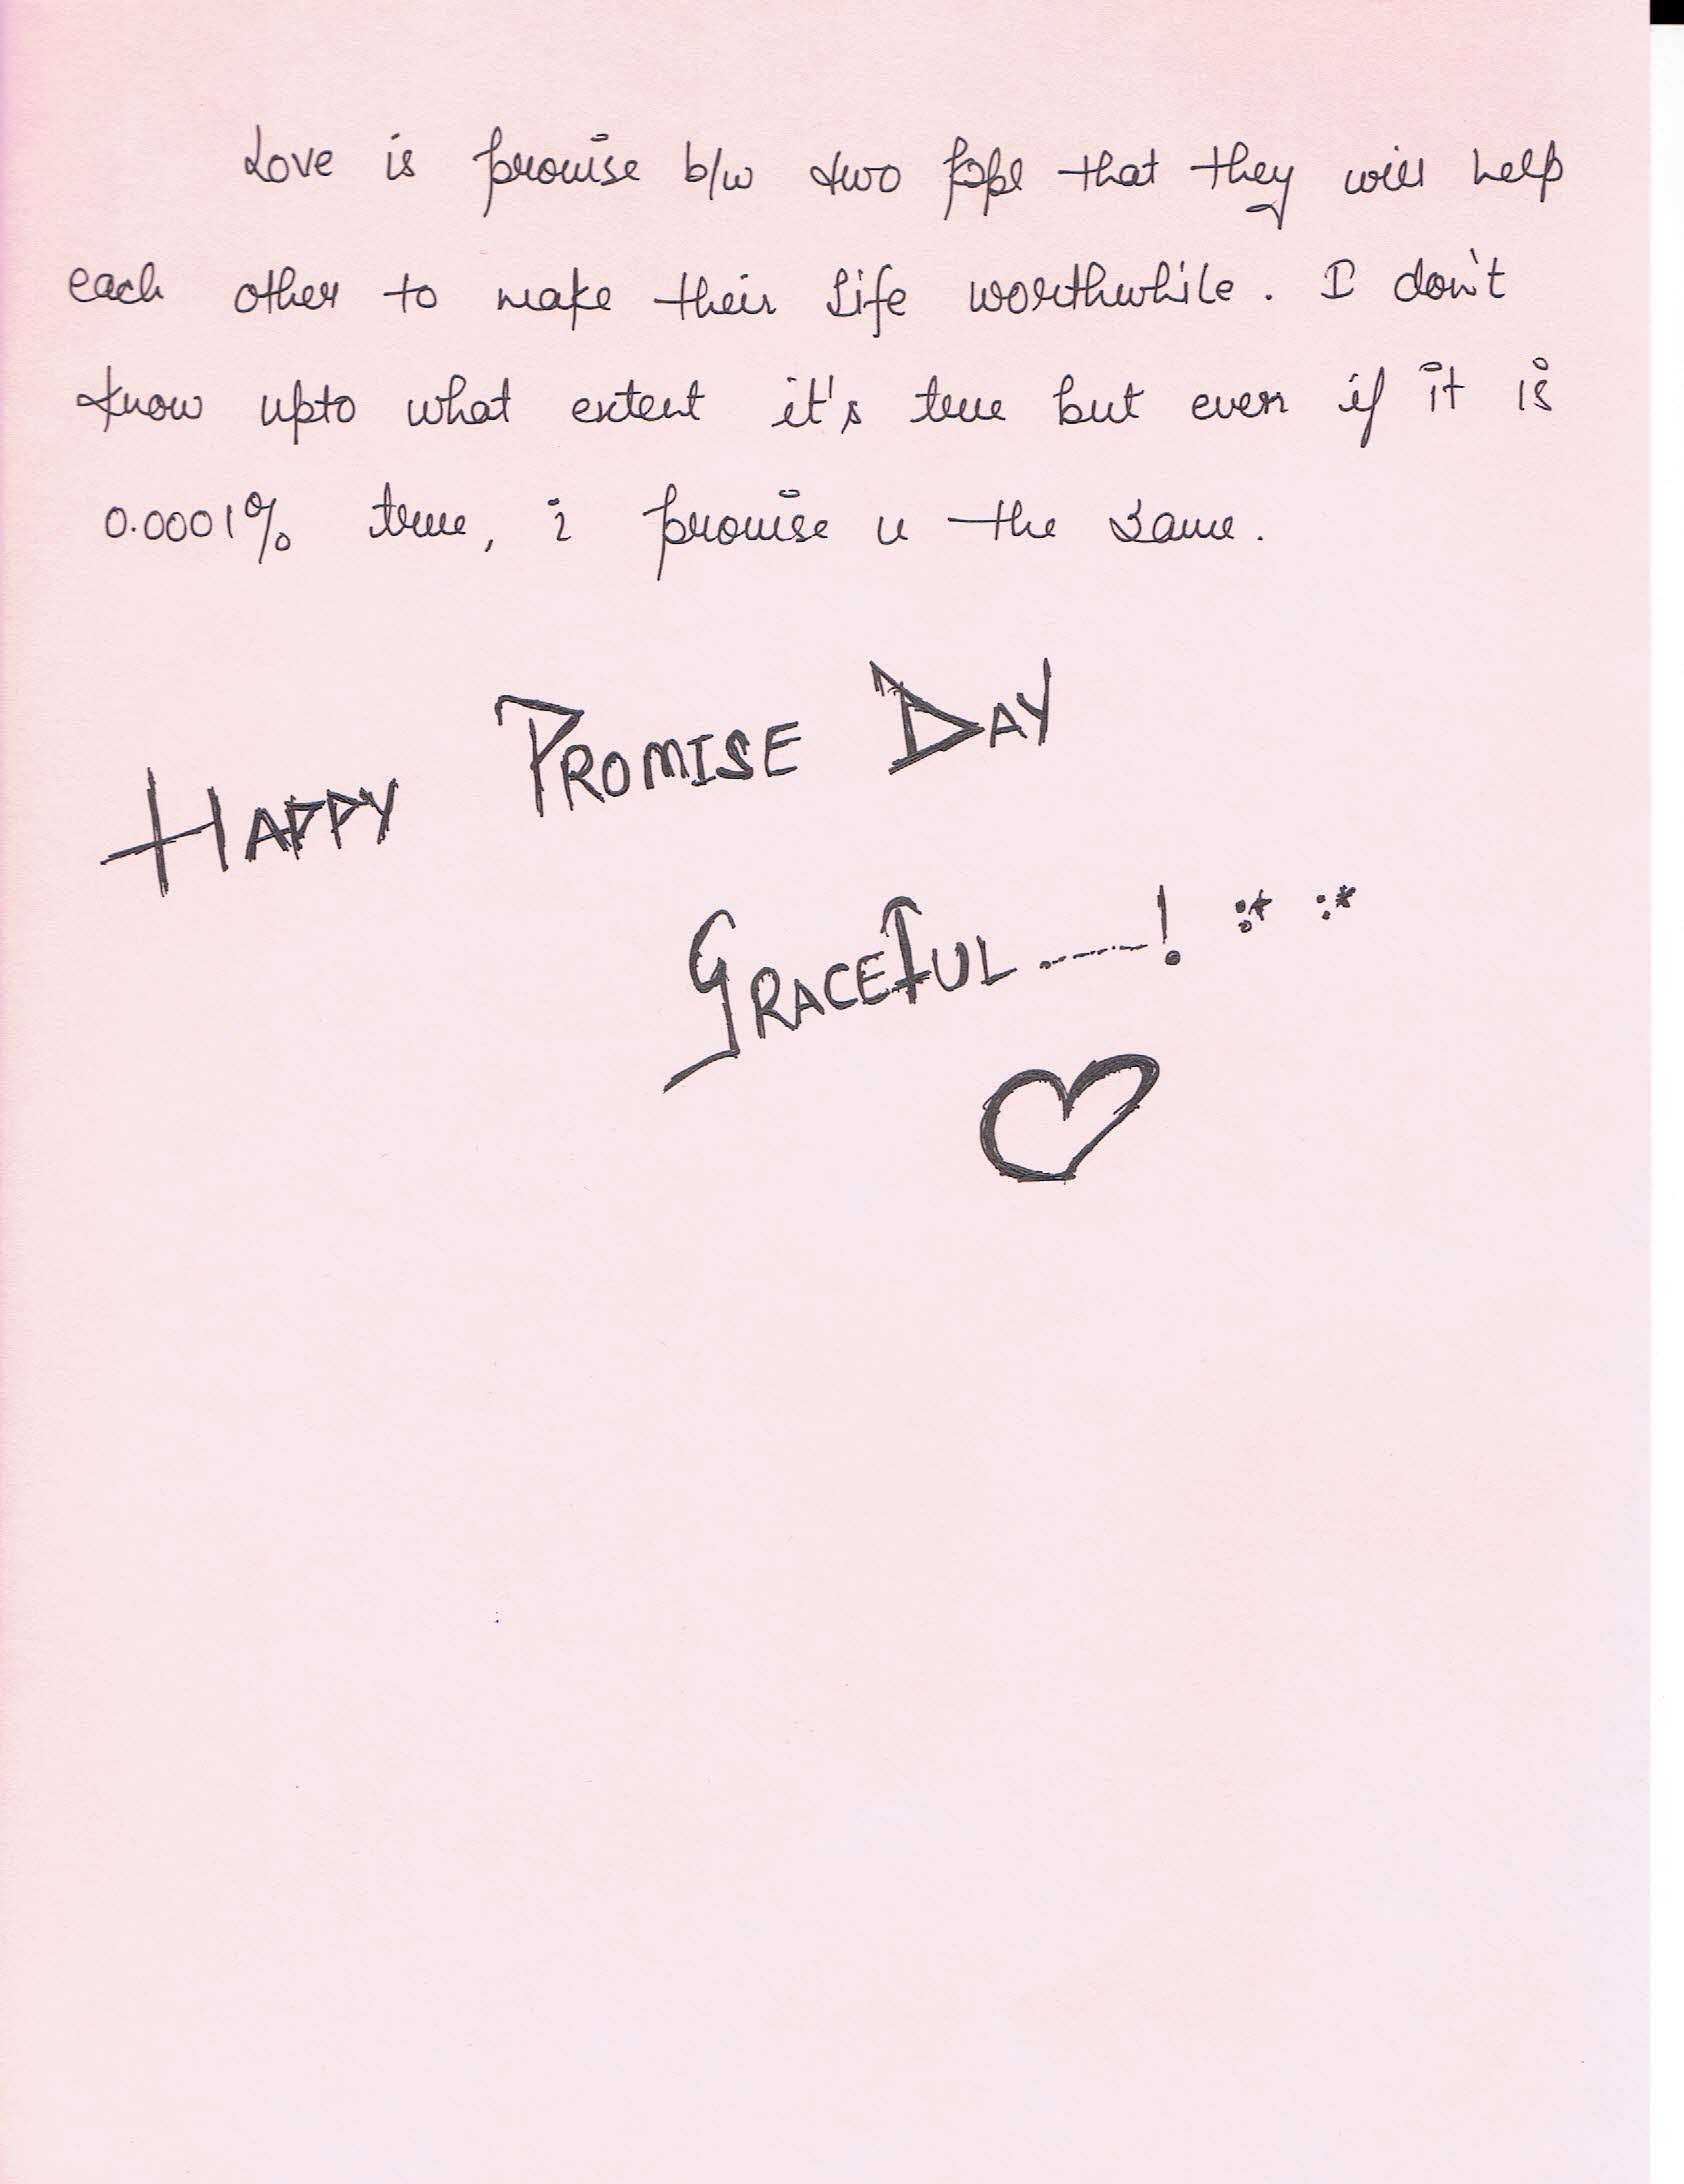 Love is promise b/w two ppl that they will help
each other to make their life worthwhile. I don't
know upto what extent it's true but even if it is
0.0001% true, i promise u the same.
HAPPY PROMISE DAY
GRACEFUL......! :* :*